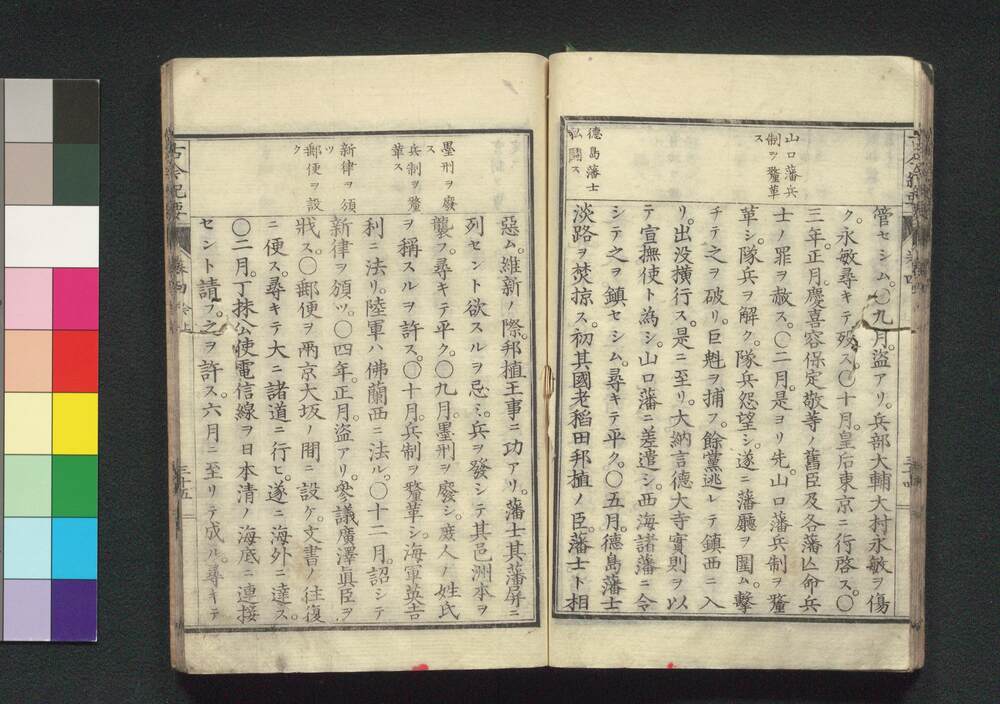 山口藩兵
制ヲ釐革
ス
德島藩士
私鬪ス
管セシム。〇九月。盜アリ。兵部大輔大村永敏ヲ傷
ク。永敏尋キテ歿ス。〇十月。皇后東京ニ行啓ス。〇
三年。正月。慶喜容保定敬等ノ舊臣及各藩亡命兵
士ノ罪ヲ赦ス。〇二月。是ヨリ先。山口藩兵制ヲ釐
革シ。隊兵ヲ解ク。隊兵怨望シ。遂ニ藩廳ヲ圍ム。擊
チテ之ヲ破リ。巨魁ヲ捕フ。餘黨逃レテ鎮西ニ入
リ。出没横行ス。是ニ至リ。大納言德大寺實則ヲ以
テ宣撫使ト為シ。山口藩ニ差遣シ。西海諸藩ニ令
シテ之ヲ鎮セシム。尋キテ平ク。〇五月。德島藩士
淡路ヲ焚掠ス。初其國老稻田邦植ノ臣。藩士ト相
墨刑ヲ廢
ス
兵制ヲ釐
革ス
新律ヲ頒
ツ
郵便ヲ設
ク
惡ム。維新ノ際。邦植王事ニ功アリ。藩士其藩屏ニ
列セント欲スルヲ忌ミ。兵ヲ發シテ其邑洲本ヲ
襲フ。尋キテ平ク。〇九月。墨刑ヲ廢シ。庶人ノ姓氏
ヲ稱スルヲ許ス。〇十月。兵制ヲ釐革シ。海軍英吉
利ニ法リ。陸軍ハ佛蘭西ニ法ル。〇十二月。詔シテ
新律ヲ頒ツ。〇四年。正月。盜アリ。參議廣澤眞臣ヲ
戕ス。〇郵便ヲ兩京大坂ノ間ニ設ケ。文書ノ往復
ニ便ス。尋キテ大ニ諸道ニ行ヒ。遂ニ海外ニ達ス。
〇二月。丁抹公使電信線ヲ日本清ノ海底ニ連接
セント請フ。之ヲ許ス。六月ニ至リテ成ル。尋キテ
古今紀要
卷四
今上
三十五